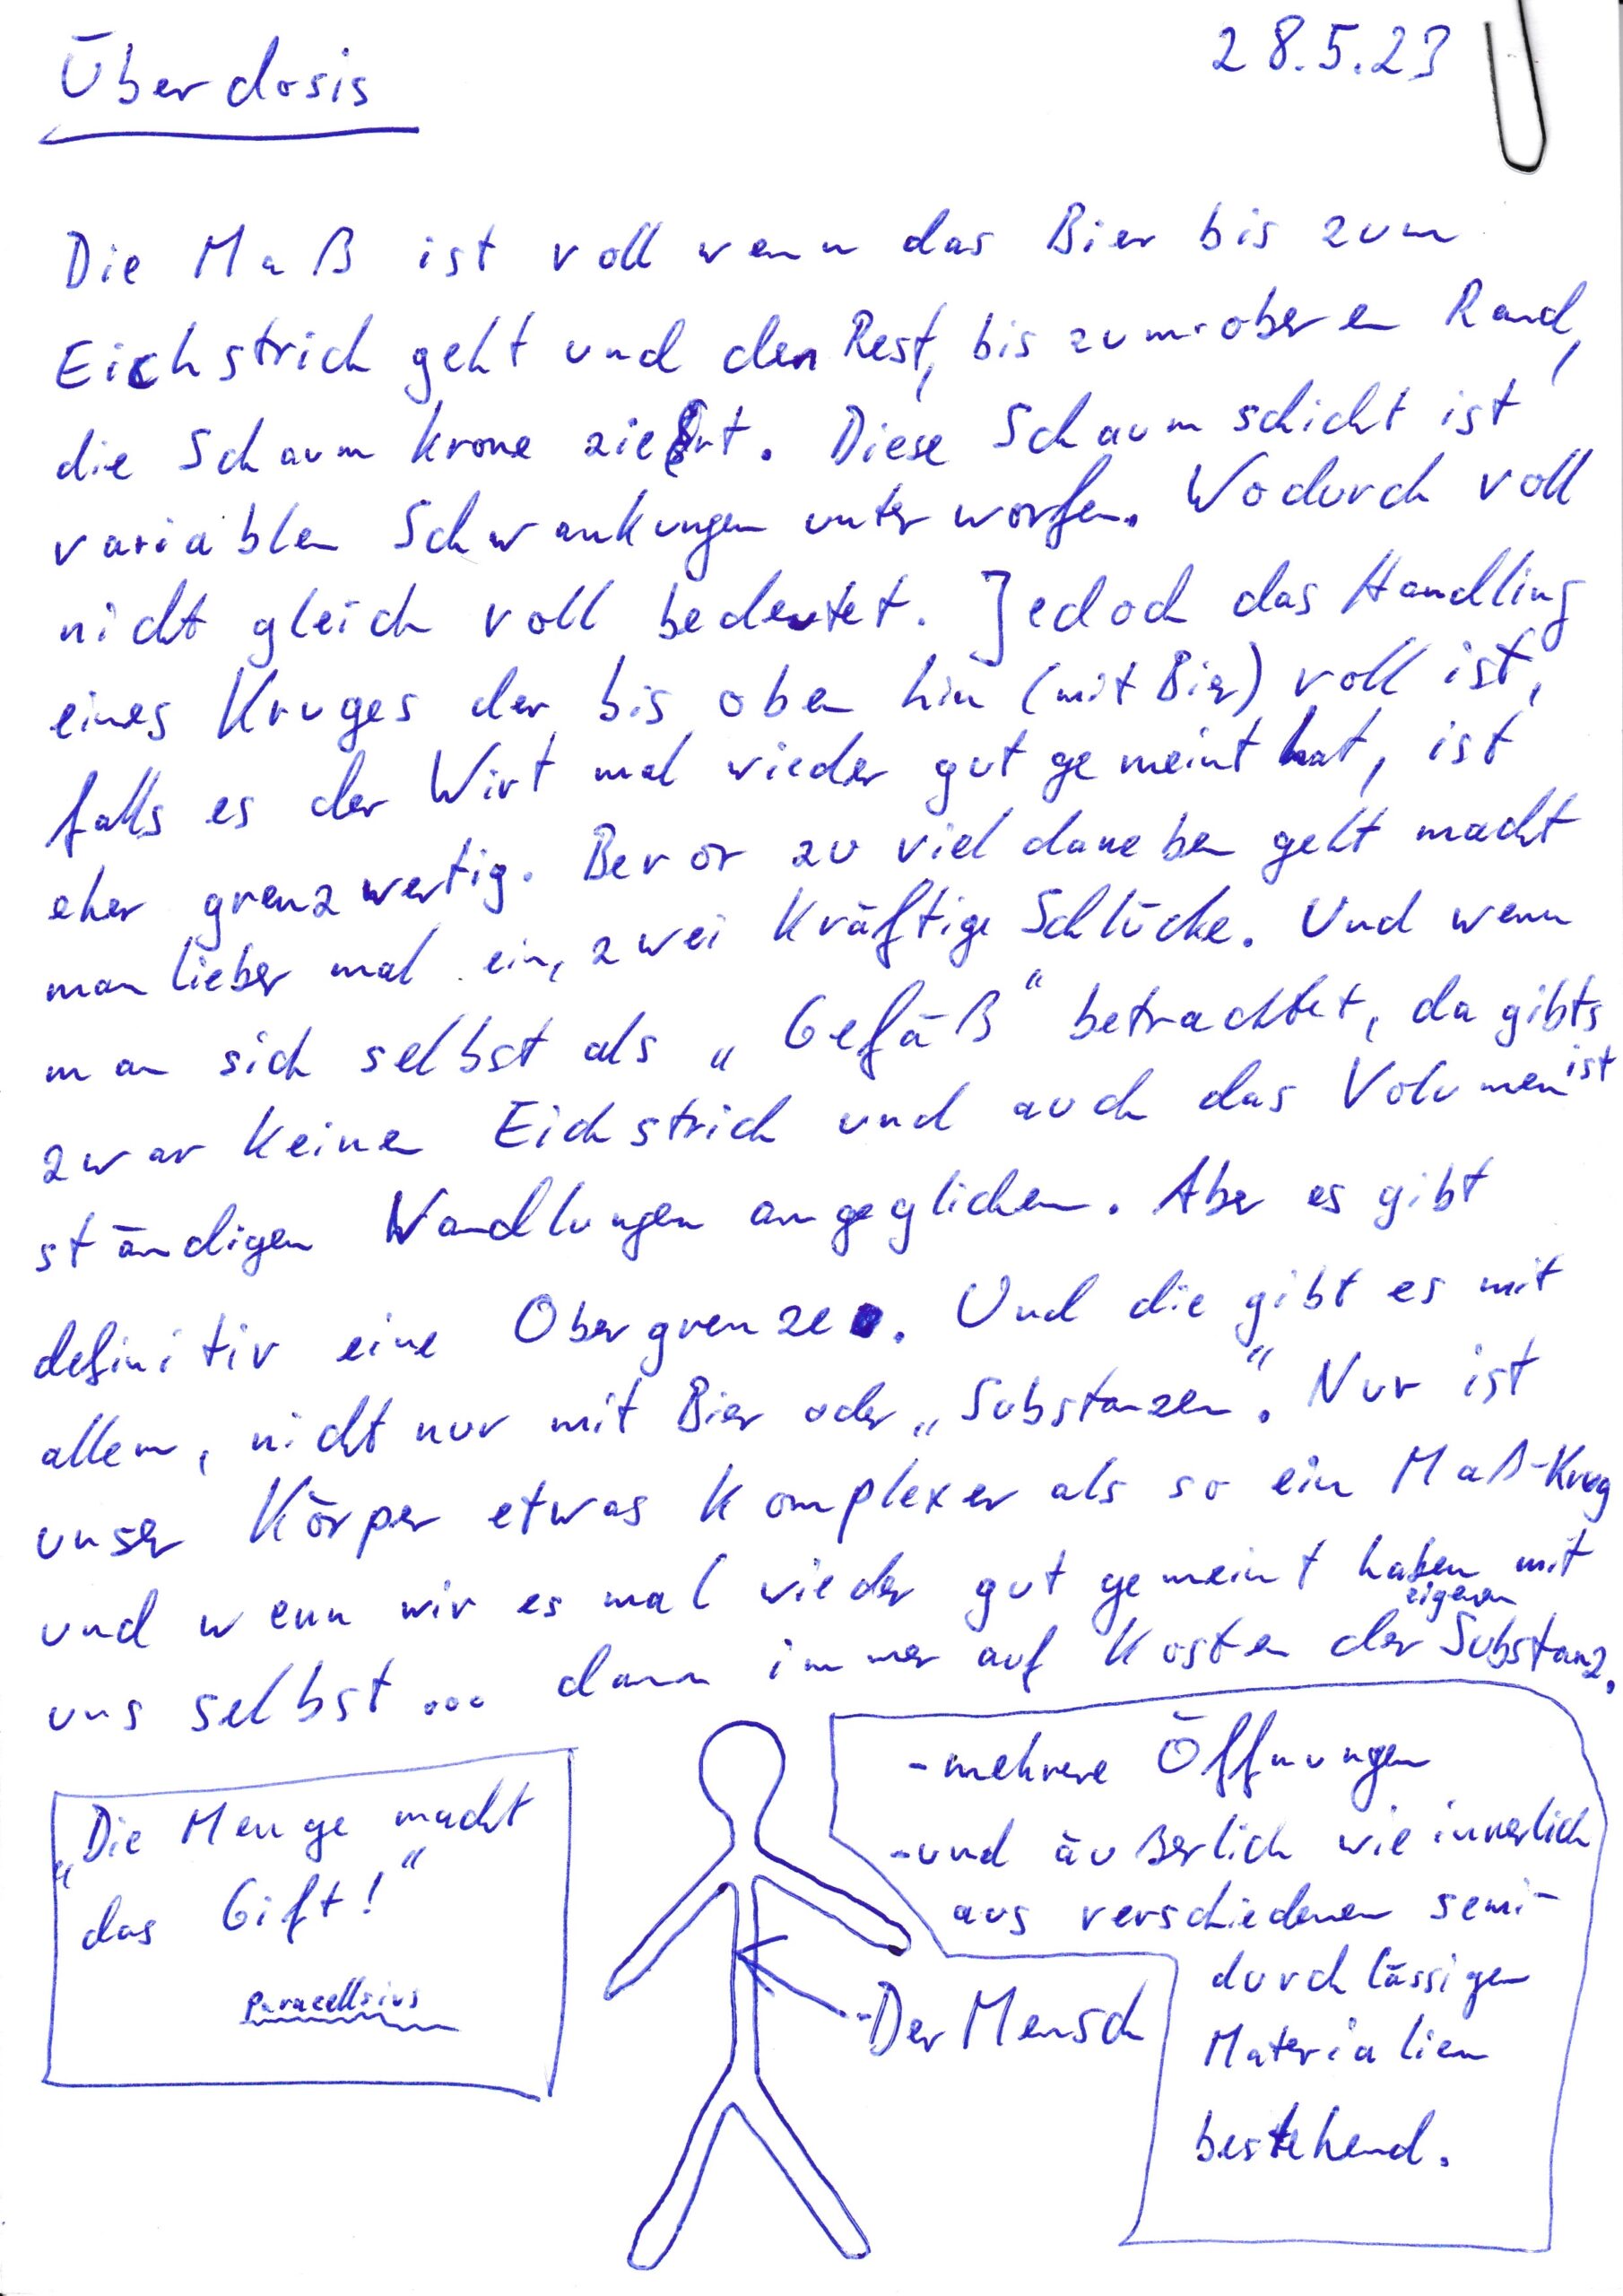 Überdosis
28.5.23
Die Maß ist voll wenn das Bier bis zum
Eichstrich geht und den Rest, bis zum oberen Rand,
die Schaumkrone ziert. Diese Schaumschicht ist
variablen Schwankungen unterworfen. Wodurch voll
nicht gleich voll bedeutet. Jedoch das Handling
eines Kruges der bis oben hin (mit Bier) voll ist,
falls es der Wirt mal wieder gut gemeint hat, ist
eher grenzwertig. Bevor zu viel daneben geht macht
man lieber mal ein, zwei kräftige Schlücke. Und wenn
man sich selbst als „Gefäß“ betrachtet, da gibts
zwar keinen Eichstrich und auch das Volumen ist
ständigen Wandlungen angeglichen. Aber es gibt
definitiv eine Obergrenze. Und die gibt es mit
allem, nicht nur mit Bier oder „Substanzen“. Nur ist
unser Körper etwas komplexer als so ein Maß-Krug
und wenn wir es mal wieder gut gemeint haben mit
uns selbst... dann immer auf Kosten der eigenen Substanz.
„Die Menge macht
das Gift!“
Paracellsius
Der Mensch
- mehrere Öffnungen
- und äußerlich wie innerlich
aus verschiedenen semi-
durchlässigen
Materialien
bestehend.